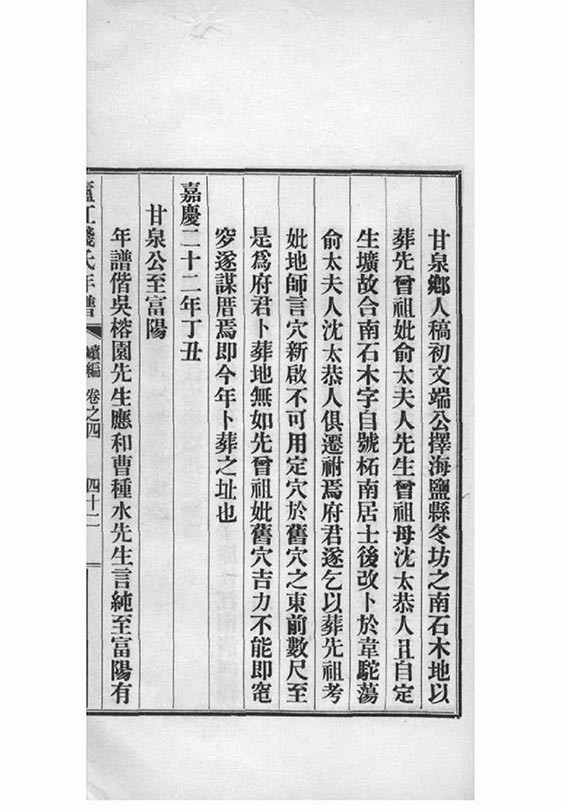 甘泉鄉人稿初文端公擇海鹽縣冬坊之南石木地以
葬先曾祖妣俞太夫人先生曾祖母沈太恭人且自定
生壙故合南石木字自號柘南居士後改卜於韋駝蕩
俞太夫人沈太恭人俱遷祔焉府君遂乞以葬先祖考
妣地師言穴新啟不可用定穴於舊穴之東前數尺至
是爲府君卜葬地無如先曾祖妣舊穴吉力不能即窀
穸遂謀厝焉即今年卜葬之址也
嘉慶二十二年丁丑
甘泉公至富陽
年譜偕吳榕園先生應和曹種水先生言純至富陽有
廬江錢氏年譜 續編 卷之四 四十二